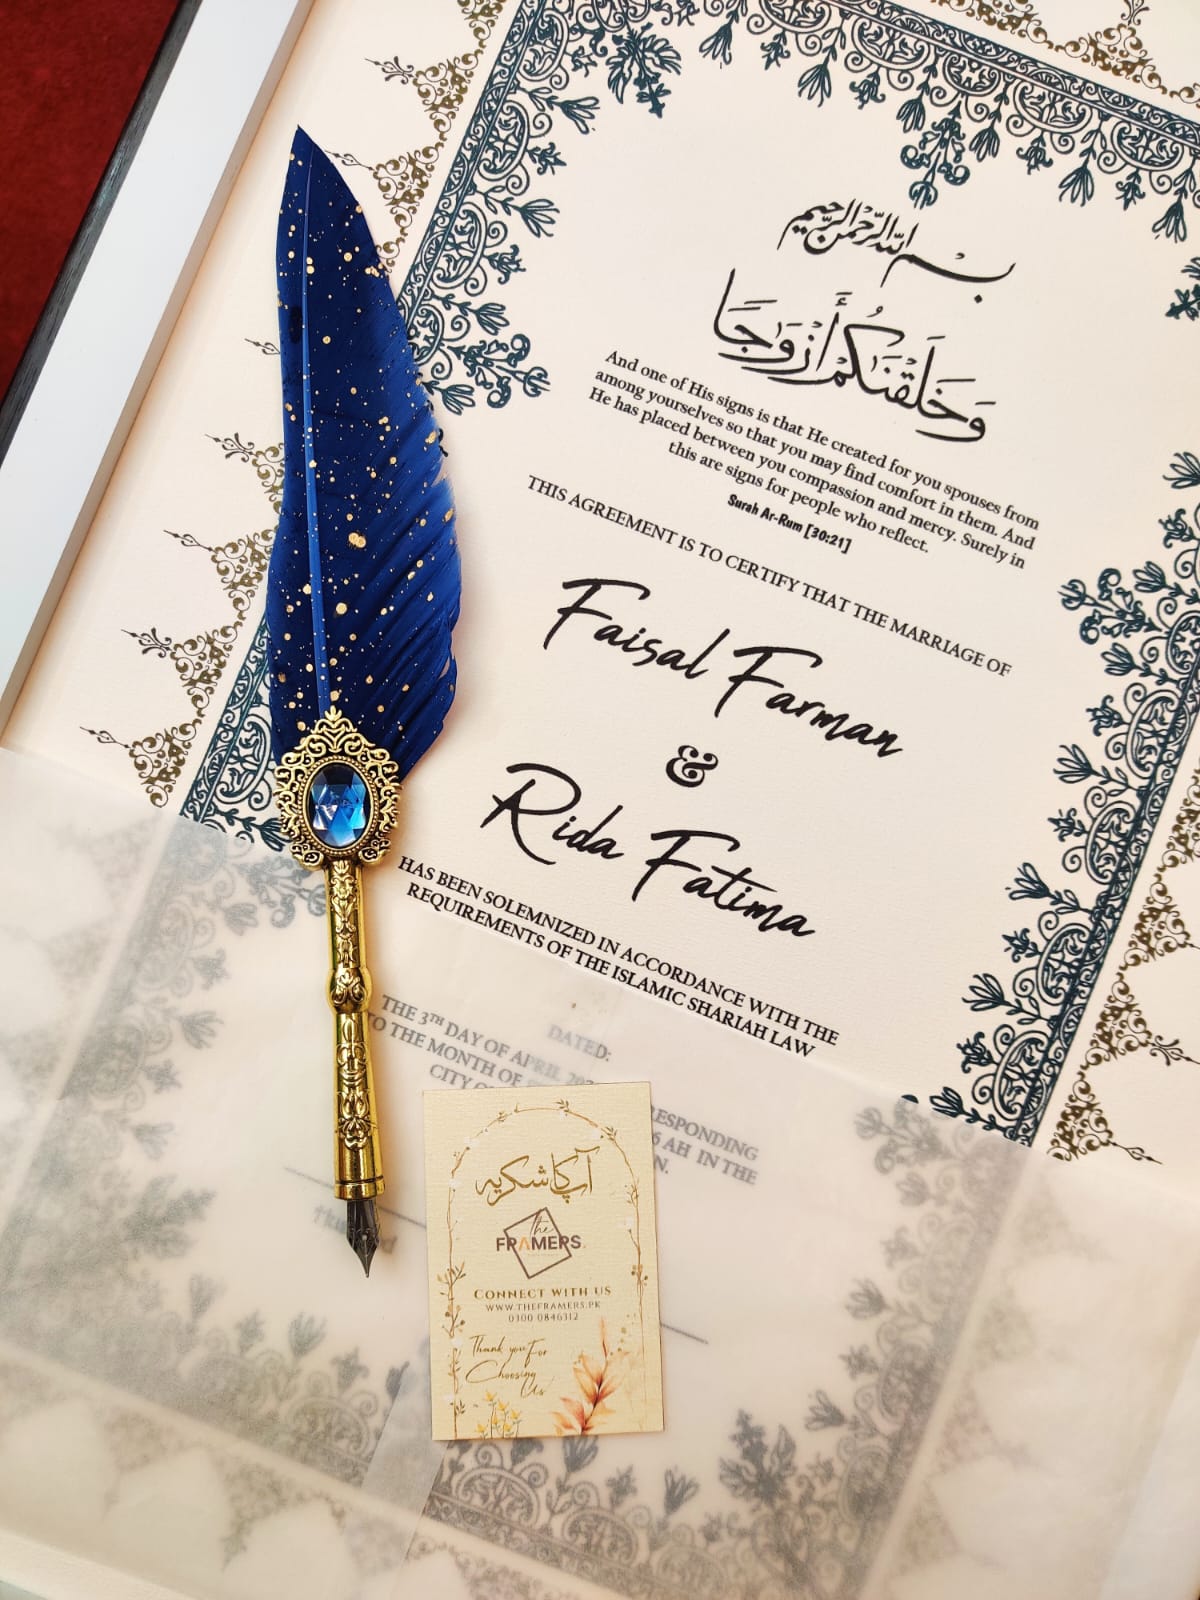 بسم الله الرحمن الرحيم
وَخَلَقْنَاكُمْ أَزْوَاجًا
And one of His signs is that He created for you spouses from
among yourselves so that you may find comfort in them. And
He has placed between you compassion and mercy. Surely in
this are signs for people who reflect.
Surah Ar-Rum [30:21]
THIS AGREEMENT IS TO CERTIFY THAT THE MARRIAGE OF
Faisal Farman
&
Rida Fatima
HAS BEEN SOLEMNIZED IN ACCORDANCE WITH THE
REQUIREMENTS OF THE ISLAMIC SHARIAH LAW
DATED:
THE 3TH DAY OF APRIL RESPONDING
TO THE MONTH OF 6 AH IN THE
CITY
آپ کا شکریہ
The
FRAMERS
CONNECT WITH US
WWW.THEFRAMERS.PK
0300 0846312
Thank you For
Choosing
Us